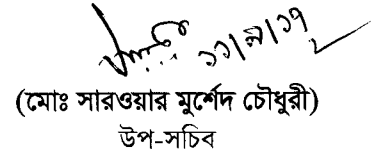 ১১/৯/১৭
(মোঃ সারওয়ার মুর্শেদ চৌধুরী)
উপ-সচিব